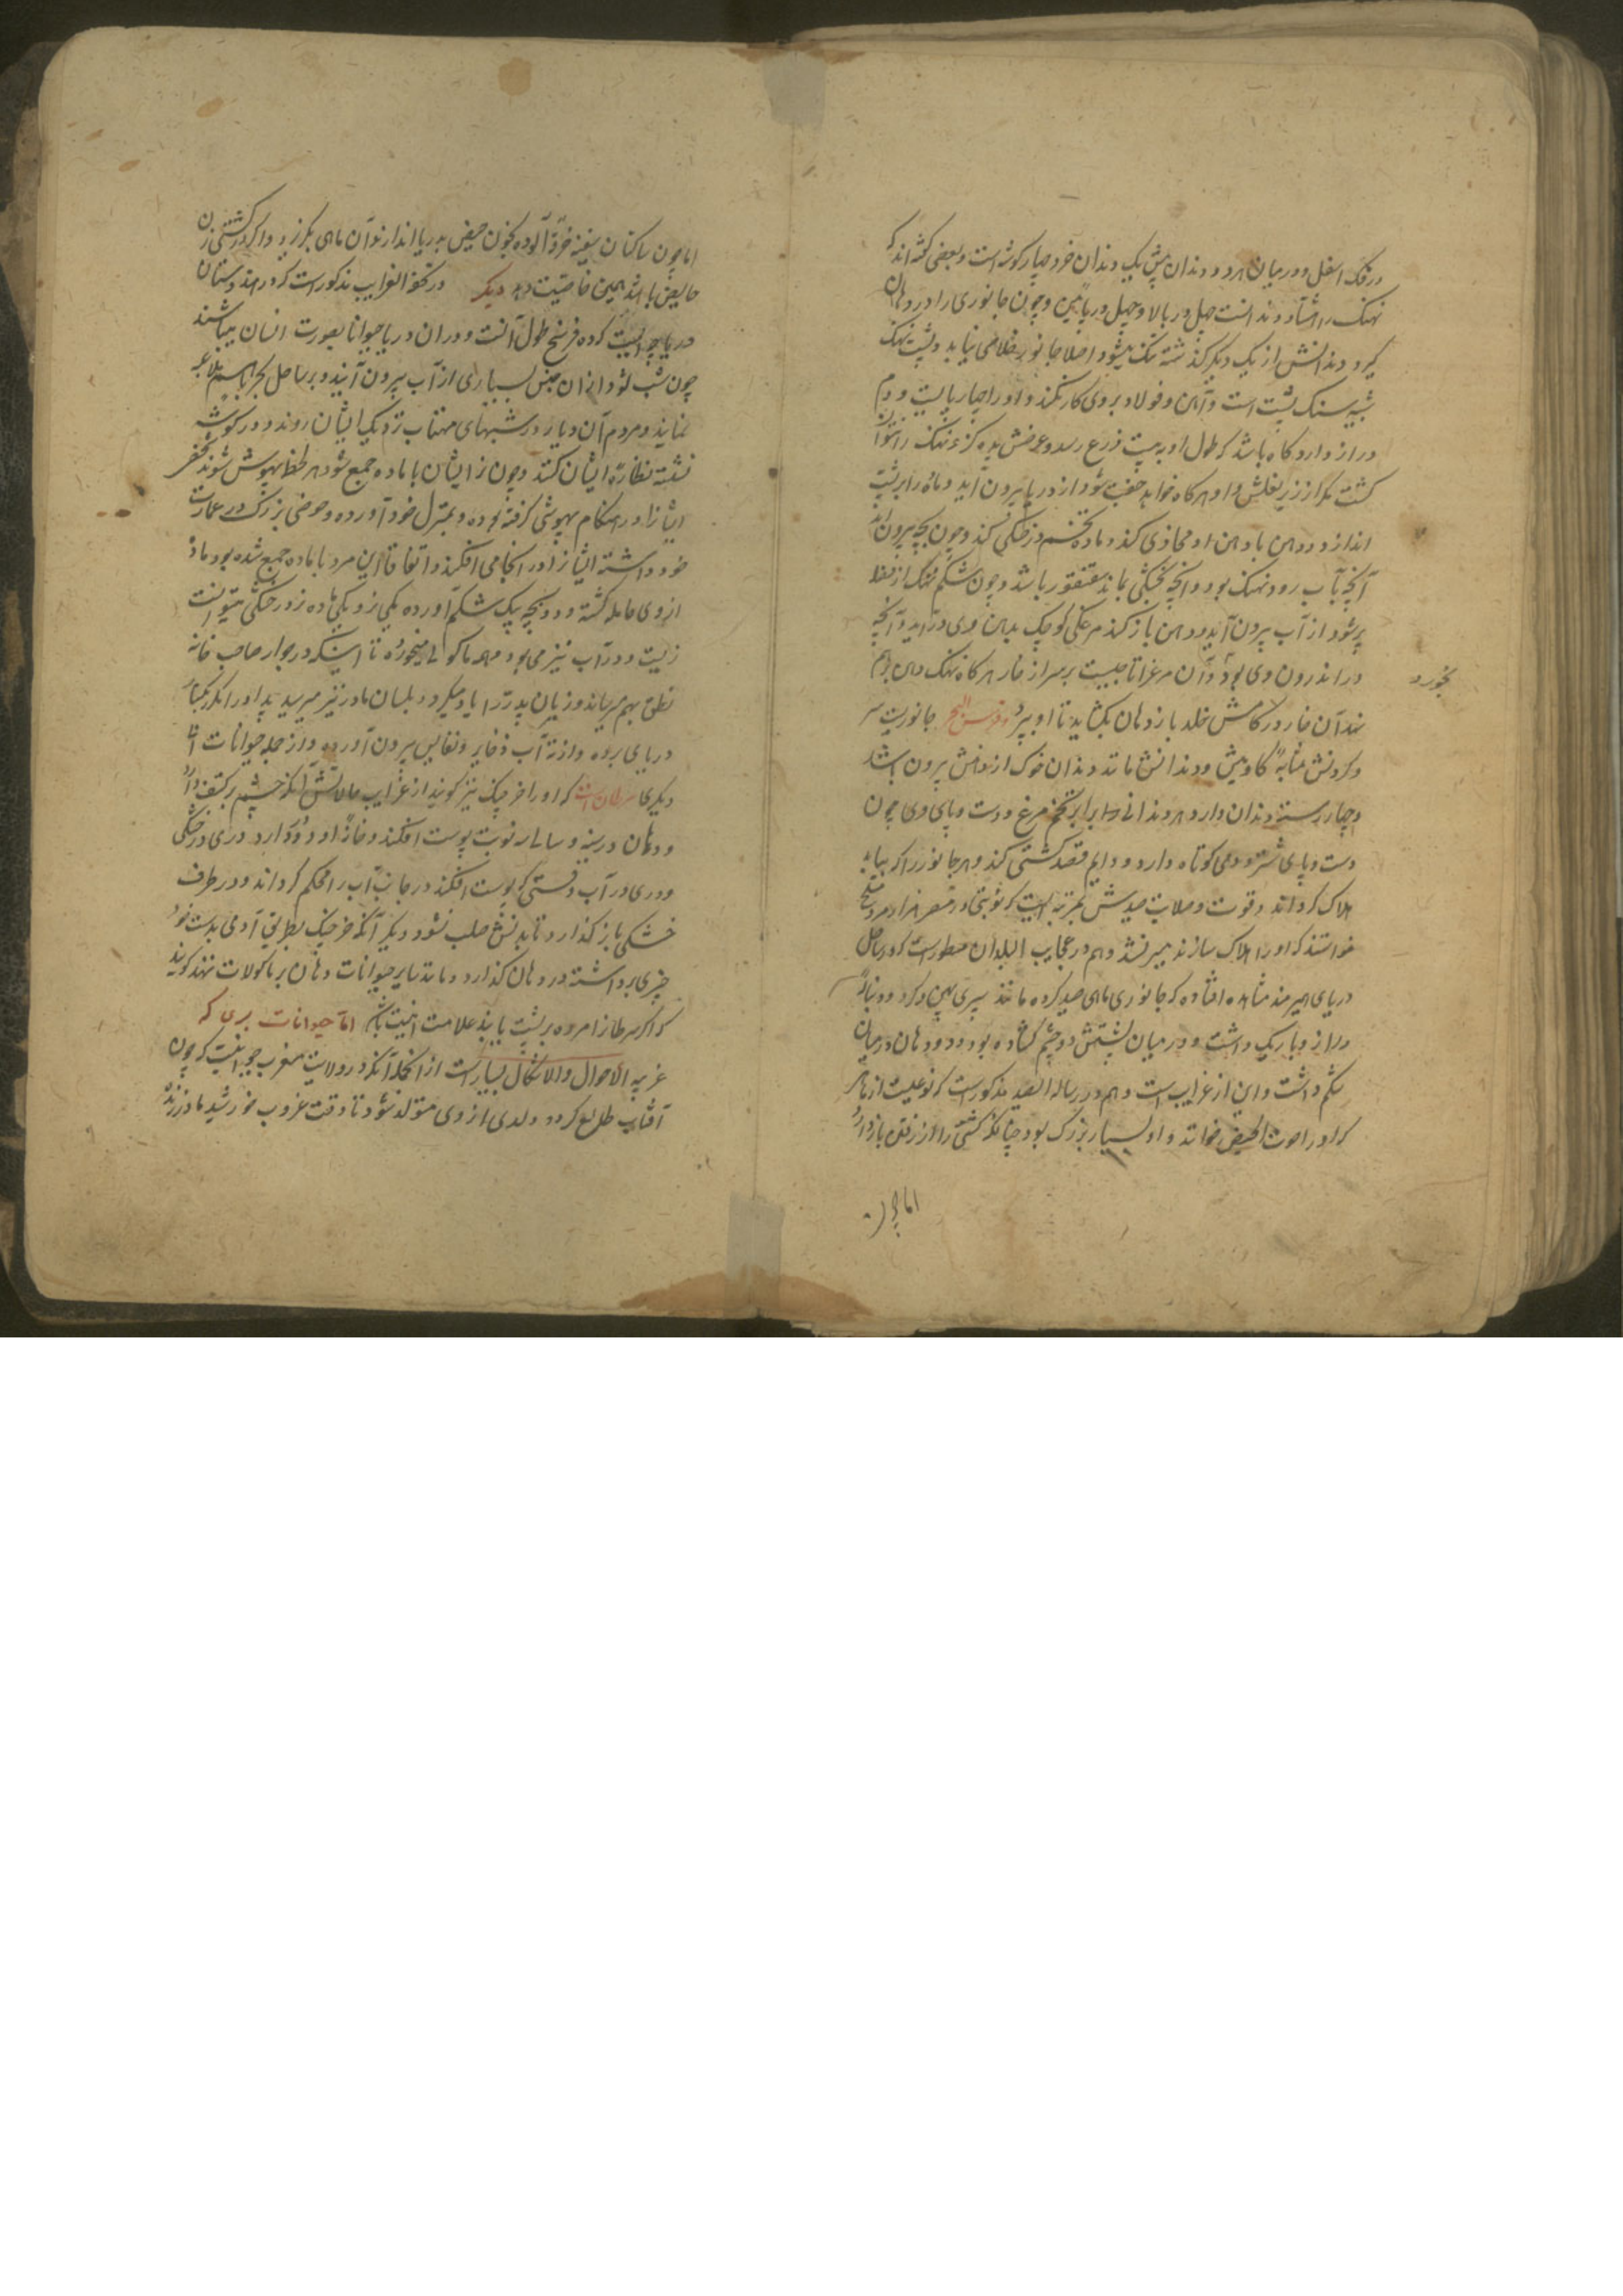 در فک اسفل و در میان هر دو دندان پیش یک دندان خرد چهار گوشه است و بعضی گفته اند که
نهنک را هشتاد دندانست چهل در بالا و چهل در پائین و چون جانوری را در دهان
کیرد دندانش از یک دیکر گذشته تنک میشود و اصلا جانور خلاصی نیابد و پشت نهنک
شبیه سنک پشت است و آهن و فولاد بر وی کار نکند و او را چهار پایست و دم
دراز دارد و گاه باشد که طول او به بیست ذرع رسد و عرضش بده کز و نهنک را نتوان
کشت مکر از زیر بغلش و او هرگاه خواهد جفت شود از دریا بیرون آید و ماده را بر پشت
اندازد و دهن با دهن او محاذی کند و ماده تخم در خشکی کند و چون بچه بیرون آید
آنچه بآب رود نهنک بود و آنچه بخشکی بماند سقنقور باشد و چون شکم نهنک از فضلا
پر شود از آب بیرون آید و دهن باز کند مرغکی کوچک بدهن وی در آید و آنچه
در اندرون وی بود و آن مرغ را تاجیست بر سر از خار هرگاه نهنک دهن بر هم
بخورد
نهد آن خار در کامش خلد باز دهان بکشاید تا او بپرد و فرس البحر جانوریست سر
و گردنش مشابه گاومیش و دندانش مانند دندان خوک از دهنش بیرون باشد
و چهار رسته دندان دارد هر دندانی برابر تخم مرغ و دست و پای وی چون
دست و پای شتر و دمی کوتاه دارد و دایم قصد کشتی کند و هر جانور را که بیابد
هلاک گرداند و قوت و صلابت صیدش بمرتبه ایست که نوبتی در مصر هزار مرد مسلح
خواستند که او را هلاک سازند میسر نشد و هم در عجایب البلدان مسطورست که در ساحل
دریای هیرمند مشاهده افتاده که جانوری ماهی صید کرده مانند سپری پهن و گرد و دنباله
دراز و باریک داشت و در میان پشتش دو چشم گشاده بود و دهان در میان
شکم داشت و این از غرایب است و هم در رساله الصید مذکورست که نوعیست از ماهی
که او را حوت الحیض خوانند و او بسیار بزرک بود چنانکه کشتی را از رفتن باز دارد
اما چون
اما چون ساکنان سفینه خرقه آلوده بخون حیض بدریا اندازند آن ماهی بگریزد و اگر در کشتی زن
حایض باشد همین خاصیت دهد دیگر در تحفة الغرایب مذکورست که در هندوستان
دریاچه ایست که ده فرسخ طول آنست و در ان دریا حیوانات بصورت انسان میباشند
چون شب شود از ان جنس بسیاری از آب بیرون آیند و بر ساحل بحر با هم ملاعبه
نمایند و مردم آن دیار در شبهای مهتاب نزدیک ایشان روند و در گوشه
نشسته نظاره ایشان کنند و چون نر ایشان با ماده جمع شود هر لحظه بیهوش شوند شخصی
ایشان را در هنکام بیهوشی گرفته بوده و بمنزل خود آورده و حوضی بزرک در عمارت
خود داشته ایشان را در انجا می افکند و اتفاقا این مرد با ماده جمع شده بود ماده
از وی حامله گشته و دو بچه بیک شکم آورده یکی نر و یکی ماده نر در خشکی میتوانست
زیست و در آب نیز می بود و همه ماکولی میخورد تا اینکه در جوار صاحب خانه
نطق بهم رسانید و زبان پدر را یاد میگرد و بلسان مادر نیز میرسید پدر او را
دریا می برده و از ته آب ذخایر و نفایس بیرون آورده و از جمله حیوانات آبی
دیگری سرطان است که او را خرچنک نیز گویند از غرایب حالاتش آنکه چشم بر کتف دارد
و دهان در سینه و سالی نوبت پوست افکند و خانه او دو در دارد دری در خشکی
و دری در آب وقتی که پوست افکند در جانب آب را محکم گرداند و در طرف
خشکی باز گذارد تا بدنش صلب شود و دیگر آنکه خرچنک بطریق آدمی بدست خود
چیزی برداشته در دهان گذارد و مانند سایر حیوانات دهان بر ماکولات ننهد گویند
که اگر سرطان را مرده بر پشت یابند علامت امنیت باشد اما حیوانات بری که
غریب الاحوال و الاشکال بسیار است از انجمله آنکه در ولایت مغرب حیوانیست که چون
آفتاب طلوع کرد و ولدی از وی متولد شود تا وقت غروب خورشید مادر زنده